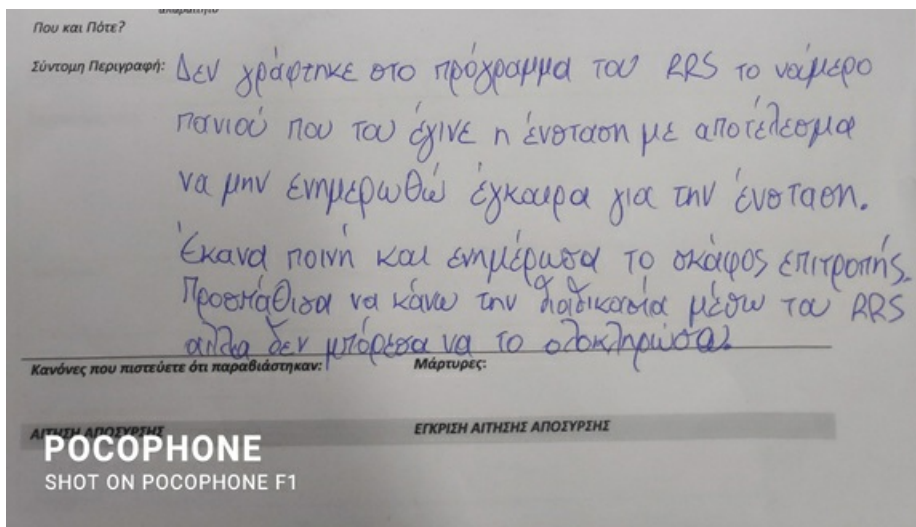 απαραίτητο
Που και Πότε?
Σύντομη Περιγραφή: Δεν γράφτηκε στο πρόγραμμα του RRS το νούμερο
πανιού που του έγινε η ένσταση με αποτέλεσμα
να μην ενημερωθώ έγκαιρα για την ένσταση.
Έκανα ποινή και ενημέρωσα το σκάφος επιτροπής.
Προσπάθισα να κάνω την διαδικασία μέσω του RRS
αλλα δεν μπόρεσα να το ολοκληρώσω.
Κανόνες που πιστεύετε ότι παραβιάστηκαν: Μάρτυρες:
ΑΙΤΗΣΗ ΑΠΟΣΥΡΣΗΣ ΕΓΚΡΙΣΗ ΑΙΤΗΣΗΣ ΑΠΟΣΥΡΣΗΣ
POCOPHONE
SHOT ON POCOPHONE F1